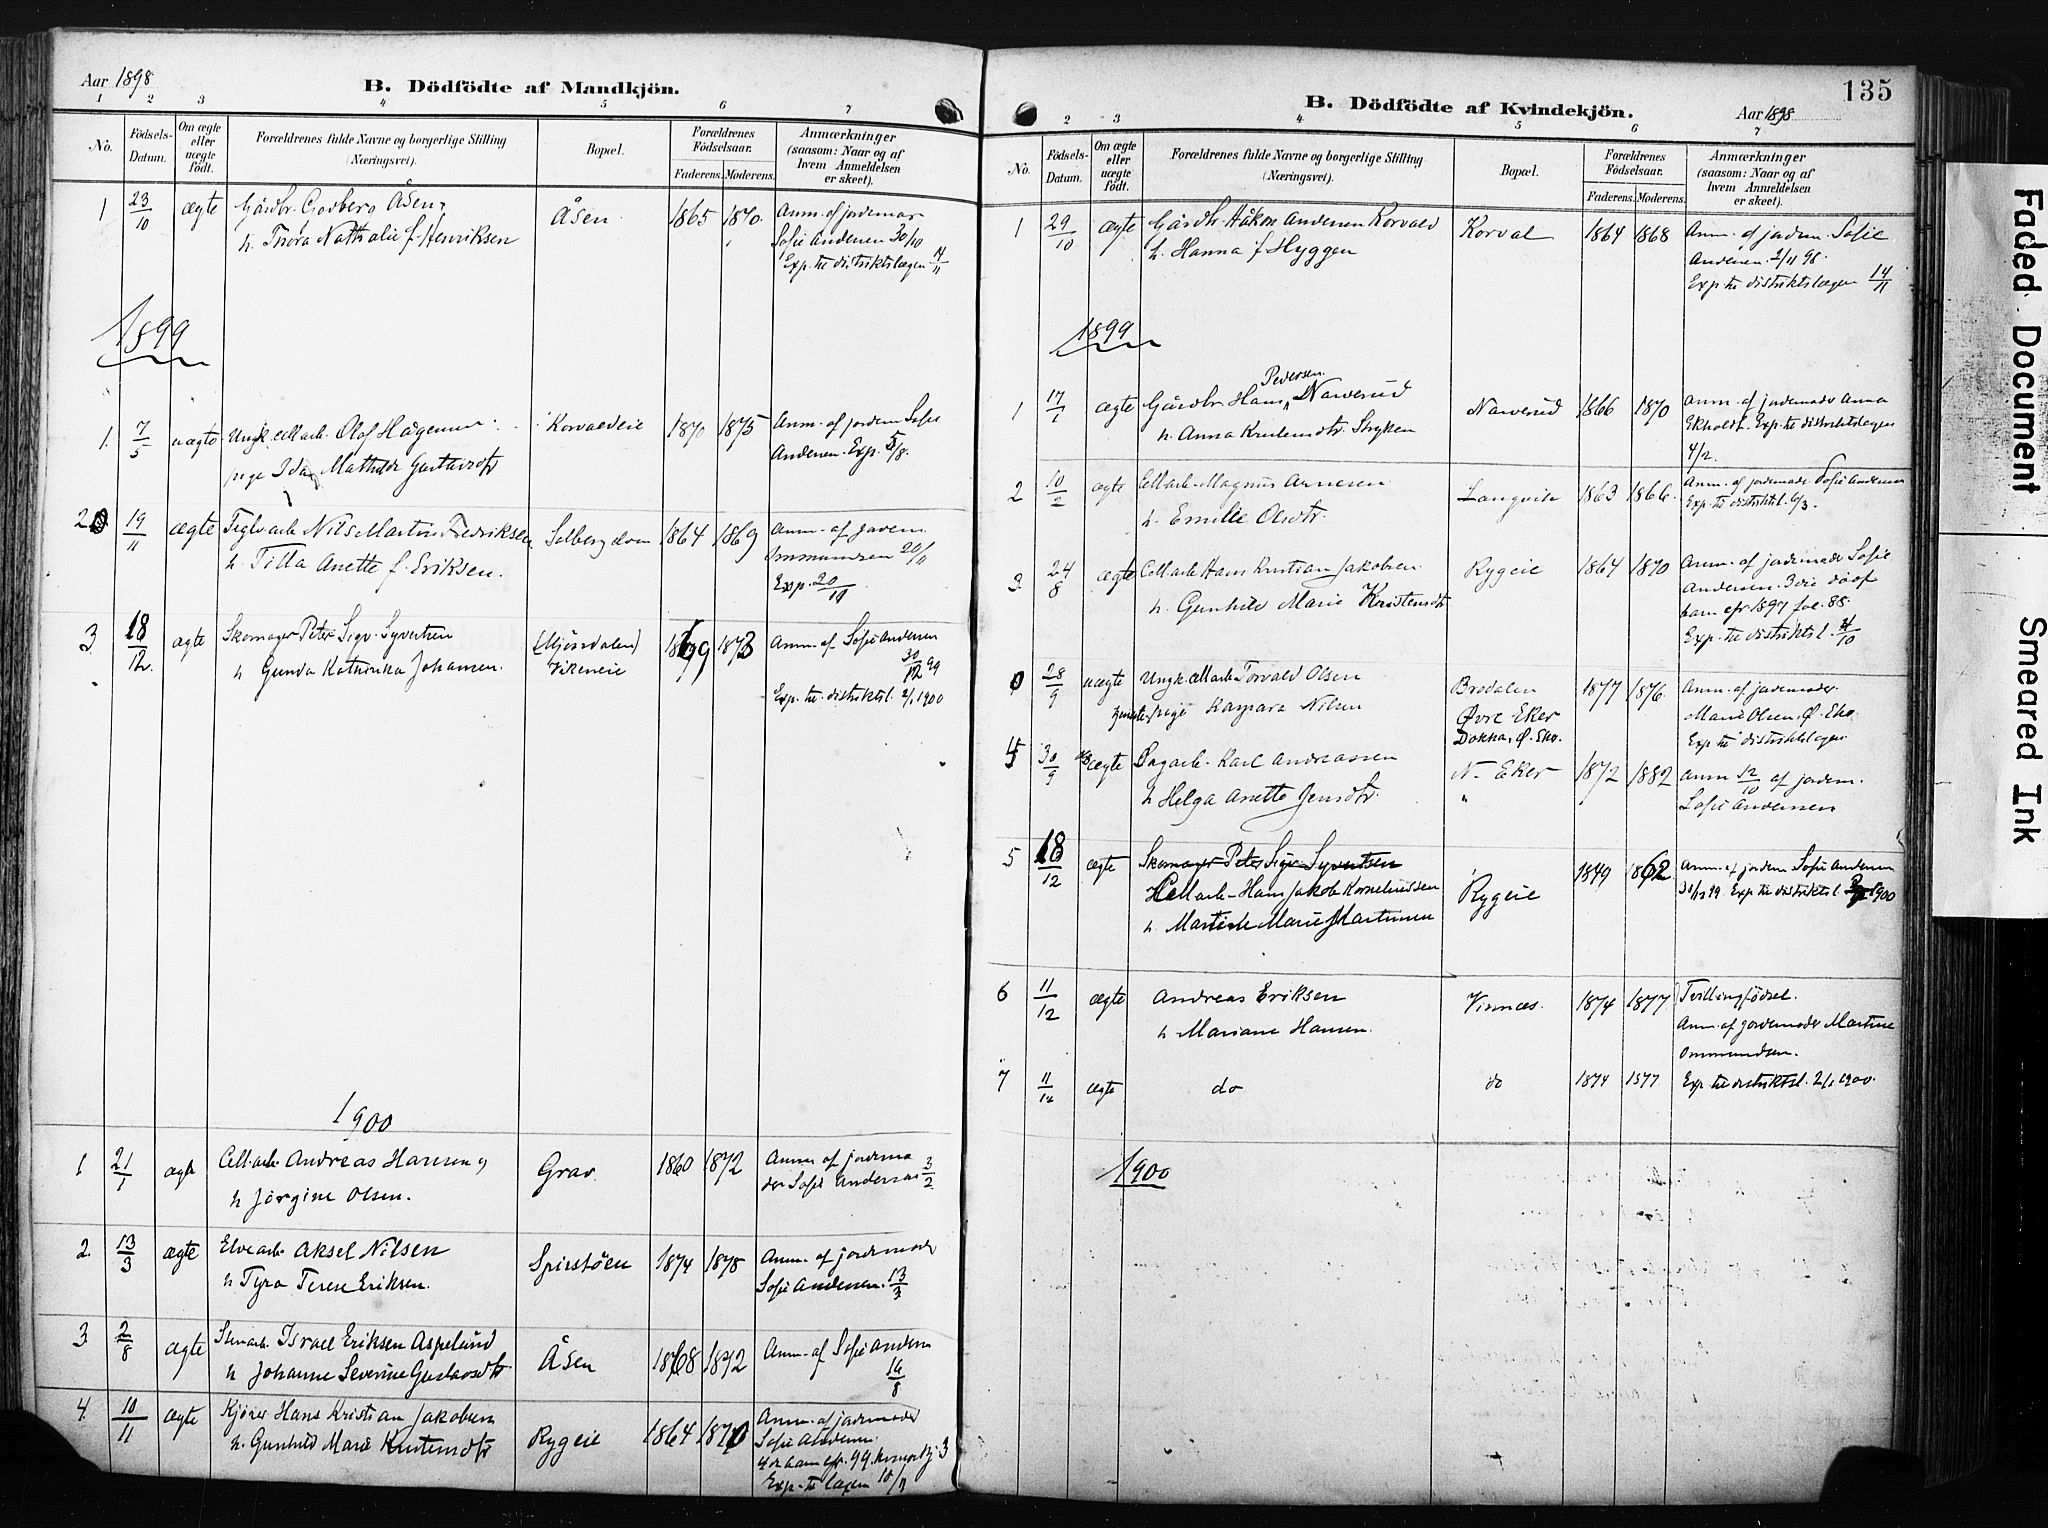 Aar 1898
B. Dödfödte af Mandkjön.
1 2 3 4 5 6 7
No.
Födsels-Datum.
Om ægte eller uægte födt.
Forældrenes fulde Navne og borgerlige Stilling
(Næringsvei).
Bopæl.
Forældrenes Födselsaar.
Faderens. Moderens.
Anmærkninger
(saasom: Naar og af
hvem Anmeldelsen
er skeet).
1 23/10 ægte Gårdbr. Godberg Åsen, Åsen. 1865 1870. Anm. af jordemor
h. Thora Nathalie f. Henriksen Sofie Andersen 30/10
Exp. til distriktslægen 14/11
1899
1. 7/5 uægte Ungk. Cellarb. Olof Korvaldeie 1870 1875 Anm. af jordem Sofie
pige Ida Mathilde Gustavsdtr Andersen. Exp. 5/8.
2 19/11 ægte Teglv.arb Nils Martin Fredriksen Solberg elven 1864 1869 Anm. af jordem.
h. Tilla Anette f. Eriksen. Ommundsen 20/11
Exp. 20/11
3. 18/12. ægte Skomager Peter Sigv. Syvertsen (Mjøndalen) 1869 1873 Anm. af Sofie Andersen
h Gunda Kathinka Johansen. Vikeneie 30/12 99
Exp. til distriktsl. 2/1 1900
1900
1 21/1 ægte Cell.arb. Andreas Hansen Grav. 1860 1872 Anm. af jordemo
h Jørgine Olsen. der Sofie Andersen 3/2
2. 13/3 ægte Elvearb. Aksel Nilsen Spirstøen 1874 1878 Anm. af jordemoder
h Tyra Terese Eriksen. Sofie Andersen. 13/3
3. 2/8 ægte Stenarb. Israel Eriksen Aspelund Åsen 1868 1872 Anm. af Sofie Andersen
h Johanne Severine Gustavsdtr. 14/8
4. 10/11 ægte Kjører Hans Kristian Jakobsen Rygeie 1864 1870 Anm. af jordemoder
h. Gunhild Marie Knutsendtr Sofie Andersen.
4de barn efr. 99. kvinekj. 3
Exp. til lægen 10/11
135
B. Dödfödte af Kvindekjön.
Aar 1898
2 3 4 5 6 7
No.
Födsels-Datum.
Om ægte eller uægte födt.
Forældrenes fulde Navne og borgerlige Stilling
(Næringsvei).
Bopæl.
Forældrenes Födselsaar.
Faderens. Moderens.
Anmærkninger
(saasom: Naar og af
hvem Anmeldelsen
er skeet).
1 29/10 ægte Gårdbr. Håkon Andersen Korvald Korval 1864 1868 Anm. af jordem. Sofie
h. Hanna f Hyggen Andersen. 2/11 98.
Exp. til distriktslægen 14/11
1899
Pedersen.
1 17/1 ægte Gårdbr Hans Narverud Narverud 1866 1870 Anm. af jordemoder Anna
h. Anna Stryken Ekholdt. Exp. til distriktslægen
4/2.
2 10/2 ægte Cellarb. Magnus Arnesen Langvik 1863 1866. Anm. af jordemoder Sofie Andersen
h. Emilie Olsdtr. Exp. til distriktsl. 6/3.
3 24/8 ægte Cellarb Hans Kristian Jakobsen. Rygeie 1864 1870 Anm. af jordemoder Sofie
h. Gunhild Marie Andersen. 3die døf
barn efr 1897 fol. 88.
Exp. til distriktsl. 4/10
28/9 uægte Ungk. Cellarb Torvald Olsen Brodalen 1877 1876. Anm. af jordemoder
pige Kaspara Nilsen Øvre Eker Marie Olsen, Ø. Eker
Dokka, Ø. Eker. Exp. til distriktslægen
30/9 ægte Dagarb. Karl Andreassen N. Eker 1872 1882 Anm 12/10 af jordem.
h Helga Anette Jensdtr. " Sofie Andersen
5 18/12 ægte Skomager Peter Sigv. Syvertsen
Cellarb. Hans Jakob Korneliussen Rygeie 1849 1862 Anm. af jordem Sofie Andersen
h. Martine Marie Martinsen 30/12 99 Exp. til distriktsl. 1900
6 11/12 ægte Andreas Eriksen Vinnæs. 1874 1877 Tvillingfødsel.
h. Mariane Hansen. Anm. af jordemoder Martine
Ommundsen.
7 11/12 ægte do do 1874 1877 Exp. til distriktsl. 2/1 1900.
1900
Faded Document
Smeared Ink